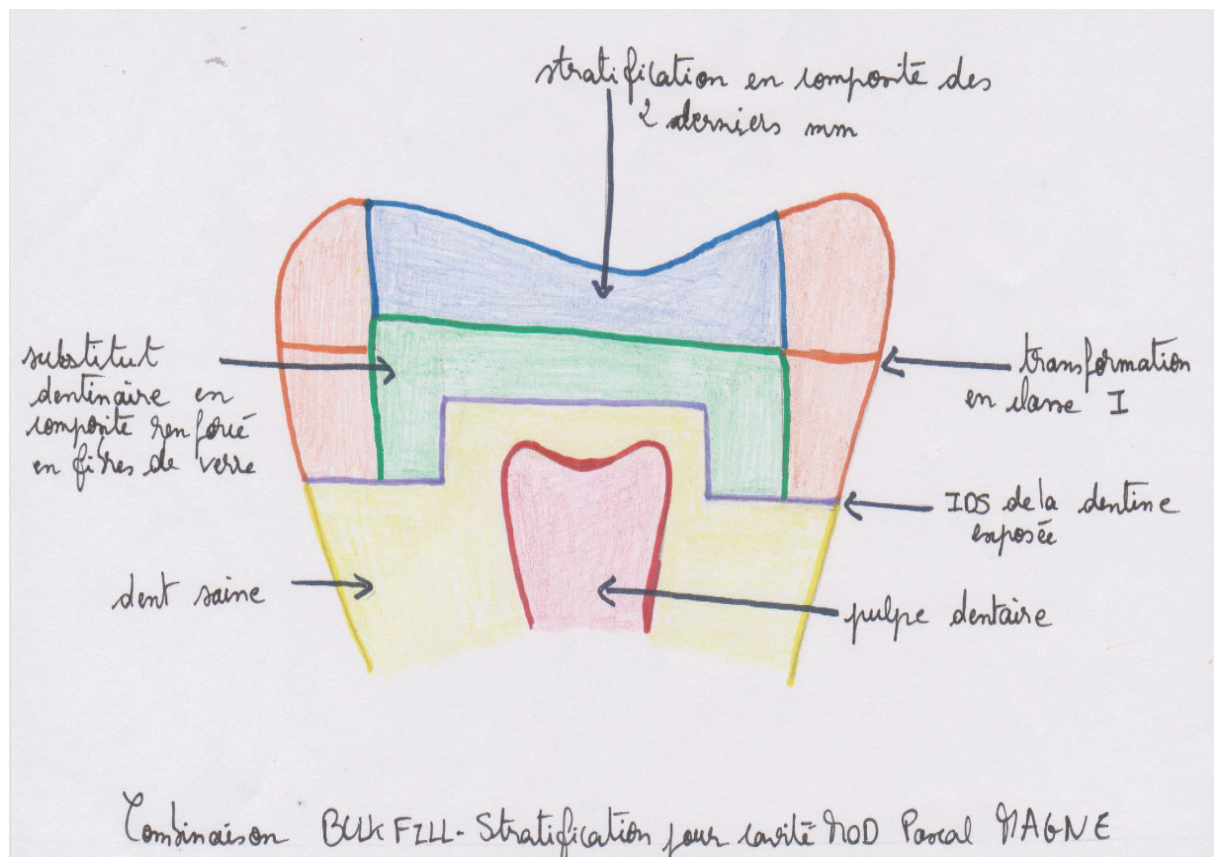 stratification en composite des
2 derniers mm
substitut
dentinaire en
composite renforcé
en fibres de verre
transformation
en classe I
IDS de la dentine
exposée
dent saine
pulpe dentaire
Combinaison BULKFILL - Stratification pour cavité MOD Pascal MAGNE